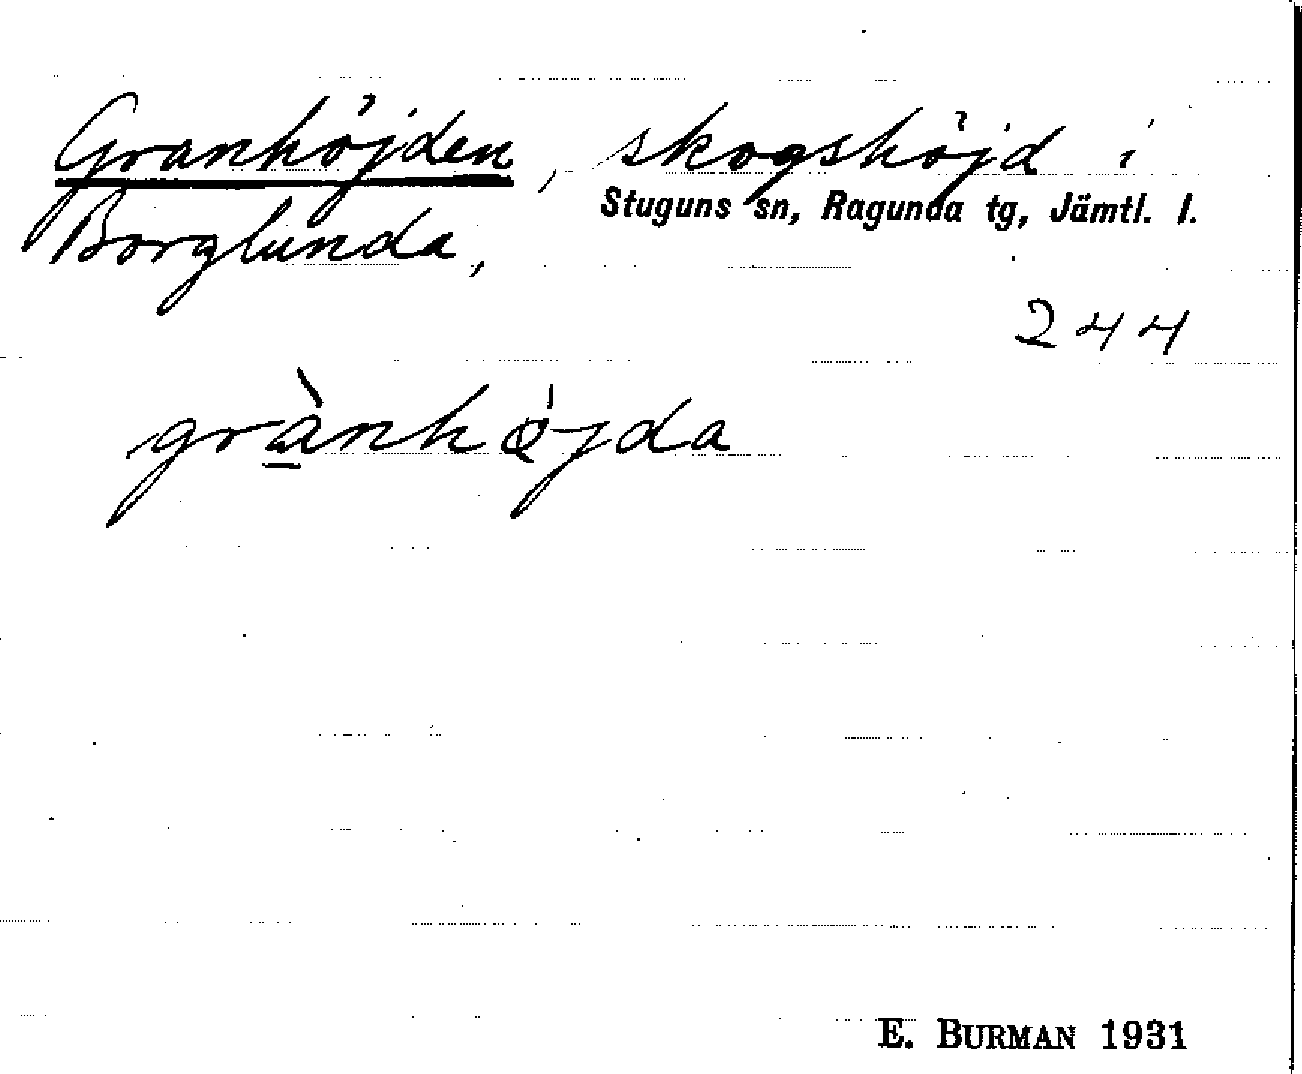 Granhöjden, skogshöjd i
Stuguns sn, Ragunda tg, Jämtl. l.
Borglunda,
244
grànhöjda
E. BURMAN 1931